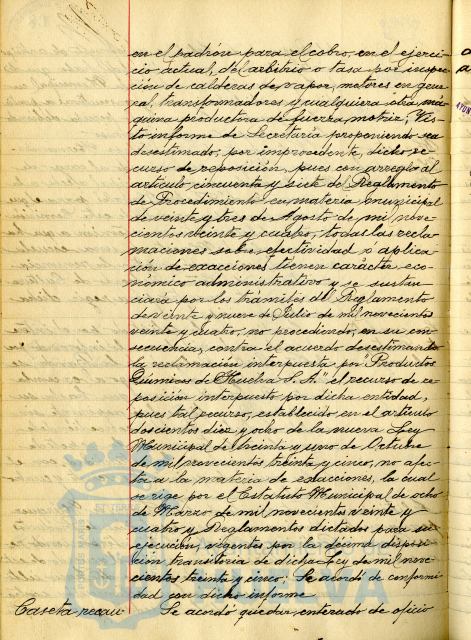 en el padrón para el cobro, en el ejerci-
cio actual, del arbitrio o tasa por inspec-
cion de calderas de vapor, motores en gene-
ral, transformadores y cualquiera otra má-
quina productora de fuerza motriz; Vis-
to informe de Secretaría proponiendo sea
desestimado, por improcedente, dicho re-
curso de reposición, pues con arreglo al
artículo cincuenta y siete del Reglamento
de Procedimiento en materia municipal
de veinte y tres de Agosto de mil nove-
cientos veinte y cuatro, todas las recla-
maciones sobre efectividad o aplica-
ción de exacciones tienen carácter eco-
nómico administrativo y se sustan-
ciará por los tramites del Reglamento
de veinte y nueve de Julio de mil novecientos
veinte y cuatro, no procediendo, en su con-
secuencia, contra el acuerdo desestimando
la reclamación interpuesta por "Productos
Químicos de Huelva S. A." el recurso de re-
posición interpuesto por dicha entidad,
pues tal recurso, establecido en el artículo
doscientos diez y ocho de la nueva Ley
Municipal de treinta y uno de Octubre
de mil novecientos treinta y cinco, no afec-
ta a la materia de exacciones, la cual
se rige por el Estatuto Municipal de ocho
de Marzo de mil novecientos veinte y
cuatro y Reglamentos dictados para su
ejecución, vigentes por la décima disposi-
cion transitoria de dicha Ley de mil nove-
cientos treinta y cinco; Se acordó de conformi-
dad con dicho informe
Caseta recau- Se acordó quedar enterado de oficio